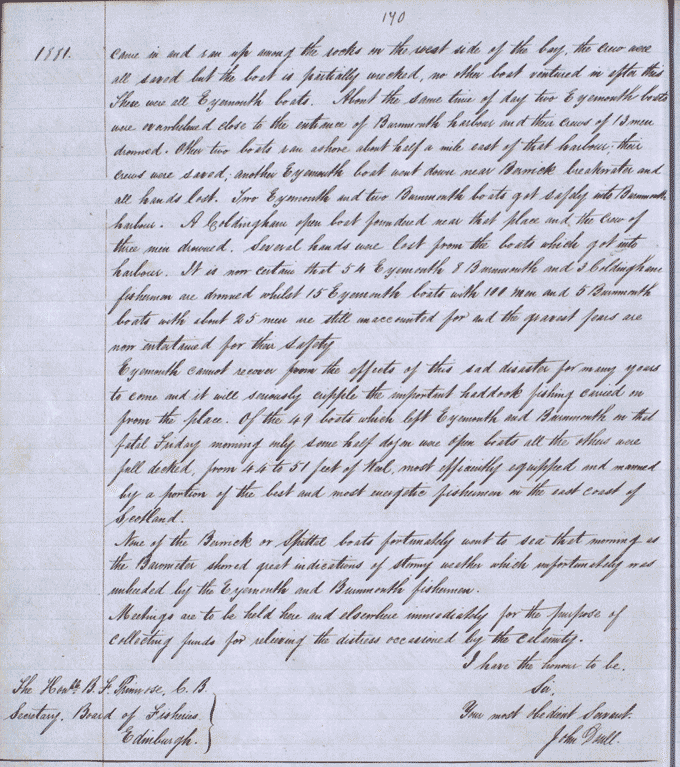 190
1881.
came in and ran up among the rocks on the west side of the bay, the crew were
all saved but the boat is partially wrecked, no other boat ventured in after this
These were all Eyemouth boats. About the same time of day two Eyemouth boats
were overwhelmed close to the entrance of Burnmouth harbour and their crews of 13 men
drowned. Other two boats ran ashore about half a mile east of that harbour; their
crews were saved; another Eyemouth boat went down near Berwick breakwater and
all hands lost. Two Eyemouth and two Burnmouth boats got safely into Burnmouth
harbour. A Coldingham open boat foundered near that place and the crew of
three men drowned. Several hands were lost from the boats which got into
harbour. It is now certain that 54 Eyemouth 8 Burnmouth and 3 Coldingham
fishermen are drowned whilst 15 Eyemouth boats with 100 men and 5 Burnmouth
boats with about 25 men are still unaccounted for and the gravest fears are
now entertained for their safety
Eyemouth cannot recover from the effects of this sad disaster for many years
to come and it will seriously cripple the important haddock fishing carried on
from the place. Of the 49 boats which left Eyemouth and Burnmouth on that
fatal Friday morning only some half dozen were open boats all the others were
full decked, from 44 to 51 feet of keel, most efficiently equipped and manned
by a portion of the best and most energetic fishermen in the east coast of
Scotland.
None of the Berwick or Spittal boats fortunately went to sea that morning as
the Barometer showed great indications of stormy weather which unfortunately was
unheeded by the Eyemouth and Burnmouth fishermen.
Meetings are to be held here and elsewhere immediately for the purpose of
collecting funds for relieving the distress occasioned by the calamity.
I have the honour to be,
Sir,
Your most obedient Servant.
John Doull.
The Honble. B. F. Primrose, C.B.
Secretary. Board of Fisheries
Edinburgh.